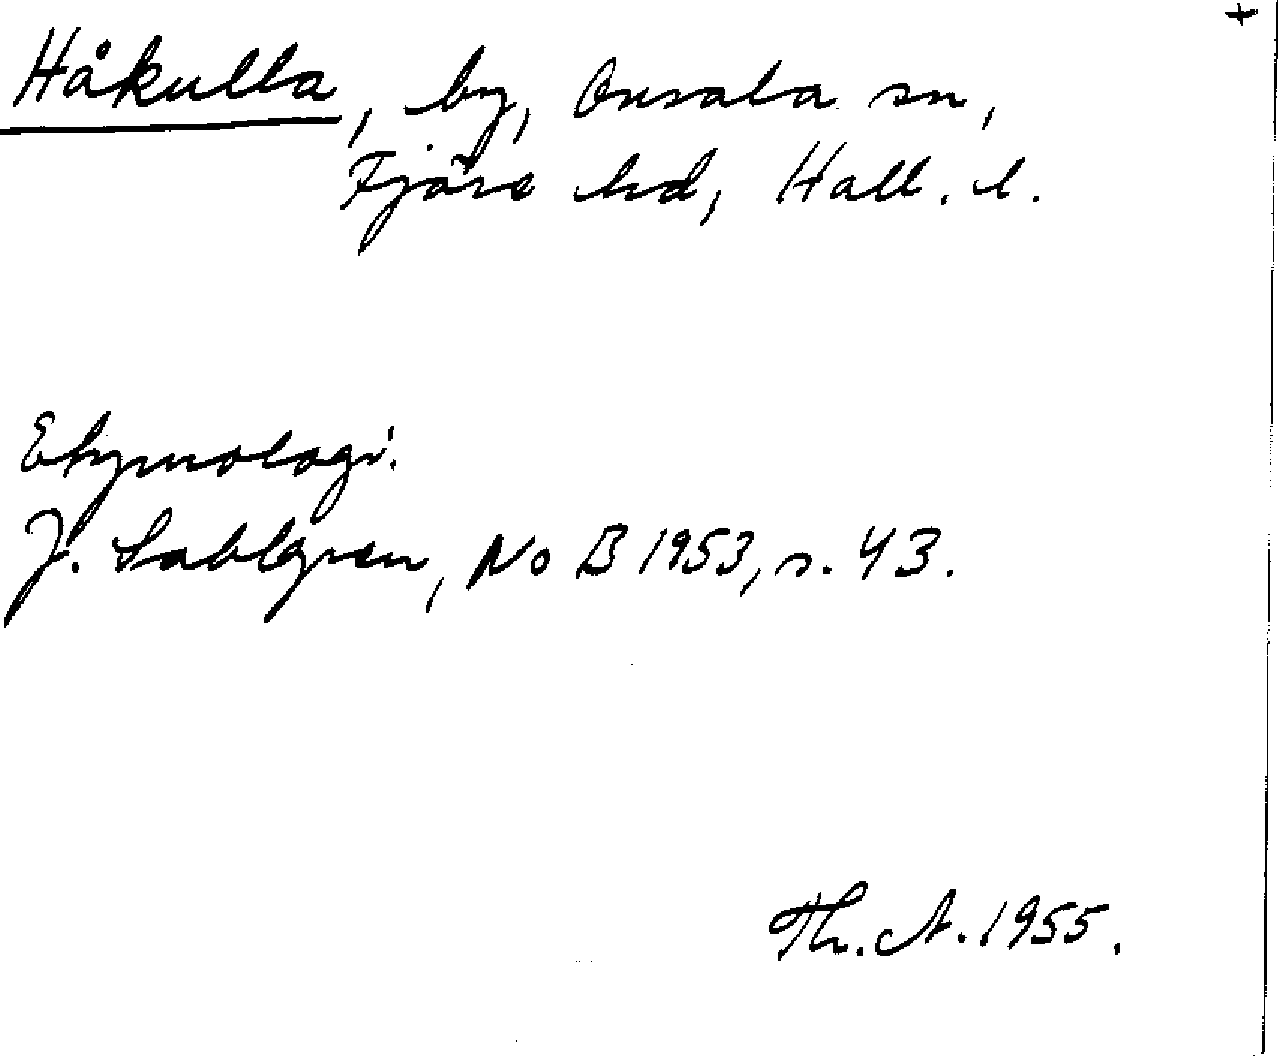 +
Håkulla, by, Onsala sn,
Fjäre hd, Hall. l.
Etymologi.
J. Sahlgren, NoB 1953, s. 43.
Th. A. 1955.